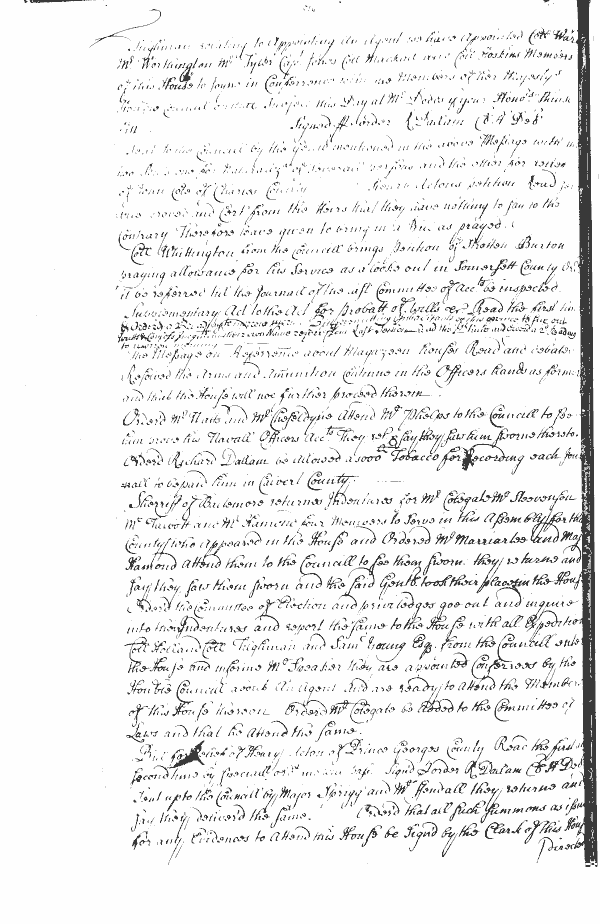 Tilghman relating to Appointing An Agent we have Appointed Coll Ward
Mr Worthington Mr Tyler Capt Jones Coll Mackall and Coll Hoskins Members
of this House to Joyne in Conferrence with the Members of her Majestys
Honble Councill on that Subject this Day at Mr Dodds if your Honors think
fitt Signed p order R Dallam Cl H Del
Sent to the Council by the Gent mentioned in the above Message with
two Bills one for of severall persons and the other for relief
of John Cole of Charles County Henry Actons petition Read
and Cert from the Heirs that they have nothing to Say to the
Contrary Therefore leave given to bring in a Bill as prayed
Coll Whittington from the Councill brings petition of Skelten Burton
praying allowance for his Service as a looke out in Somersett County
it be referred till the Journall of the last Committee of Acctt be inspected
Supplementary Act to the Act for probatt of Wills &c Read the first time
the Message on Referrence about Magazeen houses Read and debated
Resolved the Arms and Ammunition continue in the Officers hands as formerly
and that the House will not further proceed therein
Orderd Mr and Mr Cheseldyne Attend Mr Phelps to the Councill to See
him prove his Navall Officers Acctt They retn & say they saw him sworne thereto
Orderd Richard Dallam be allowed 2000 Tobacco for Recording each Jour
nall to be paid him in Calvert County
Sherriff of Baltemore returnes Indentures for Mr Colegate Mr Steevenson
Mr Talbott and Mr Hamond four Members to Serve in this Assembly for that
County who appeared in the House and Ordered Mr Marriartee and Maj
Hamond Attend them to the Councill to See them Sworn they returne and
Say they Saw them Sworn and the said Gentl took their places in the House
Orderd the Committee of Election and priviledges goe out and inquire
into their Indentures and report the same to the House with all Expedition
Coll Holland Coll Tilghman and Saml Young Esqr from the Councill enter
the House and informe Mr Speaker they are appointed Conferrees by the
Honble Councill about An Agent and are ready to Attend the Members
of this House thereon Orderd Mr Colegate be Added to the Committee of
Laws and that he Attend the same
Bill for Relief of Henry Acton of Prince Georges County Read the first and
Second time by Speciall order and will pass Signd p order R Dallam Cl H Del
Sent up to the Councill by Major Sprigg and Mr Kendall they returne and
Say they deliverd the same Orderd that all Such Summons as issue
for any Evidences to Attend this House be Signd by the Clark of this House
directed